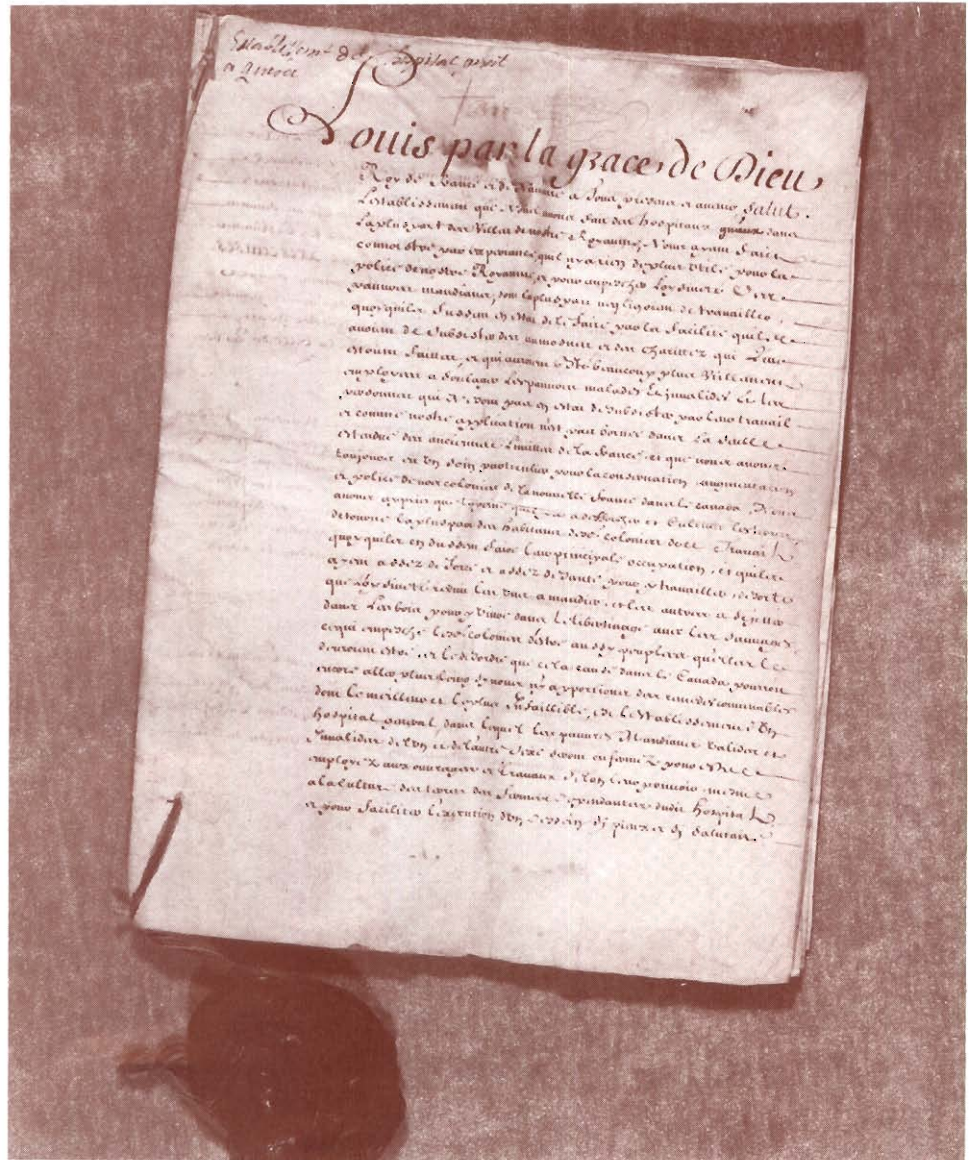 Establissemt de hospital gnral
a quebec
Louis par la grace de Dieu
Roy de france et de Navarre a Tous presens et auenir Salut.
L'establissement que Nous auons fait des hospitaux gnāux dans
la plus part des Villes de nostre Royaume, Nous ayant faict
connoistre par experience qu'il n'y a rien de plus Vtile pour la
police de nostre Royaume, et pour empescher l'oysiueté Des
pauures mandians, dont la plus part negligoient de trauailler,
quoy qu'ils fussent en estat de le faire par la facilité qu'ils
auoient de subsister des aumosnes et des charitez qui Leur
estoient faittes, et qui auroient esté beaucoup plus Vtilement
employees a soulager les pauures malades les jnualides et les
personnes qui ne sont pas en estat de subsister par leur trauail
et comme nostre application n'est pas bornée dans La seule
estendue des anciennes Limittes de la france et que nous auons
tousjours eu Vn soin particulier pour la conseruation augmentation
et police de nos colonies de la nouuelle france dans le canada, Nous
auons appris que la peine a defricher et Cultiuer les terres
detourne la plus part des habitans desd. colonies de ce Trauail
quoy qu'ils en dussent faire leur principale occupation, et qu'ils
ayent assez de force et assez de santé pour y trauailler, de sorte
que l'oysiueté reduit les vns a mandier, et les autres a se jetter
dans Les bois pour y viure dans le libertinage auec les sauuages
ce qui empesche lesd. colonies d'estre aussy peuplees qu'elles le
deuroient estre, et le desordre que cela cause dans le Canada pourroit
encore aller plus loing sy nous n'y apportions des remedes conuenables
dont le meilleur et le plus Infaillible, est l'establissement d'Vn
hospital general dans lequel les pauures Mandians valides et
Inualides de l'vn et de l'autre sexe seront enfermez pour estre
employez aux ouurages et trauaux selon leur pouuoir mesme
a la culture des terres des fermes dependantes dudit hospital
et pour faciliter l'execution d'vn dessein sy pieux et sy salutaire